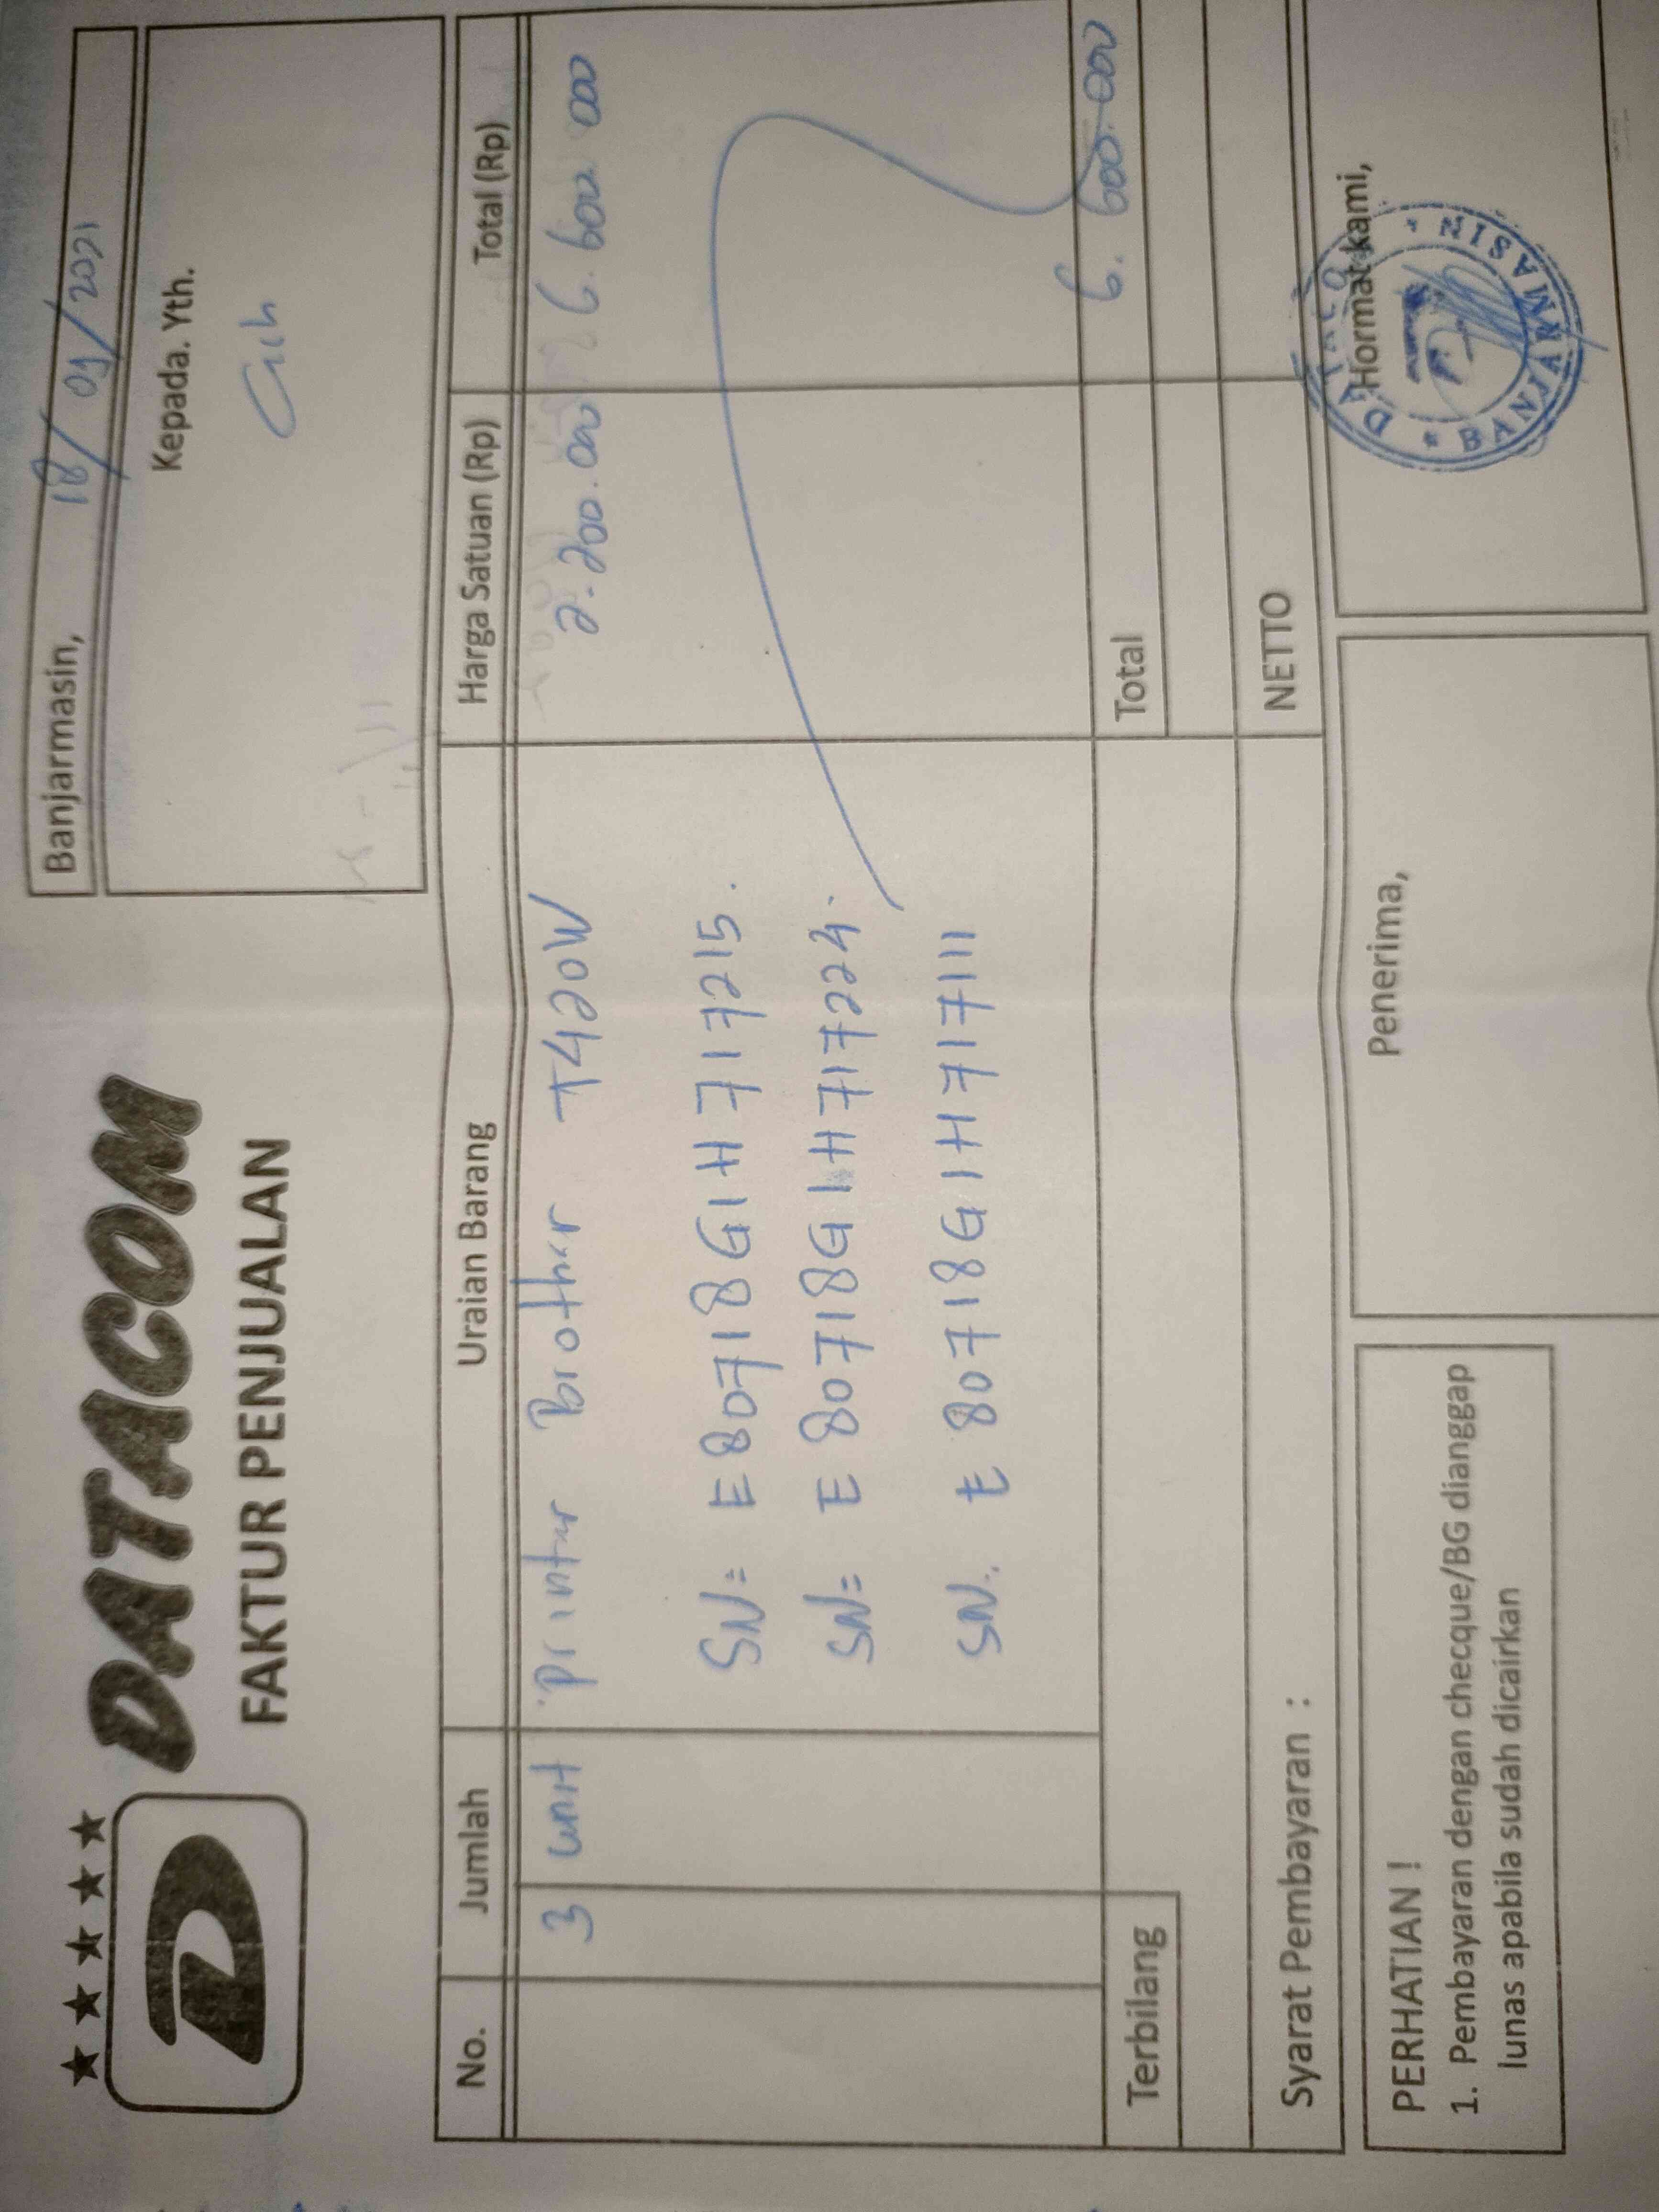 DATACOM
FAKTUR PENJUALAN
Banjarmasin, 18/09/2021
Kepada. Yth.
Cash
No. Jumlah Uraian Barang Harga Satuan (Rp) Total (Rp)
3 unit Printer Brother T420W 2.200.000 6.600.000
SN= E80718G1H717215.
SN= E80718G1H717224.
SN. E80718G1H717111
Terbilang Total 6.600.000
NETTO
Syarat Pembayaran :
PERHATIAN !
1. Pembayaran dengan checque/BG dianggap
lunas apabila sudah dicairkan
Penerima,
Hormat kami,
BANJARMASIN